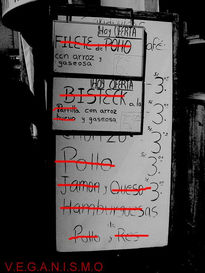 Hoy OFERTA
FILETE de POLLO
con arroz y
gaseosa
café
Hoy OFERTA
BISTECK a la
Parrilla con arroz
huevo y gaseosa
Chorizo
Pollo
Jamon y Queso
Hamburguesas
de
Pollo y Res
VEGANISMO